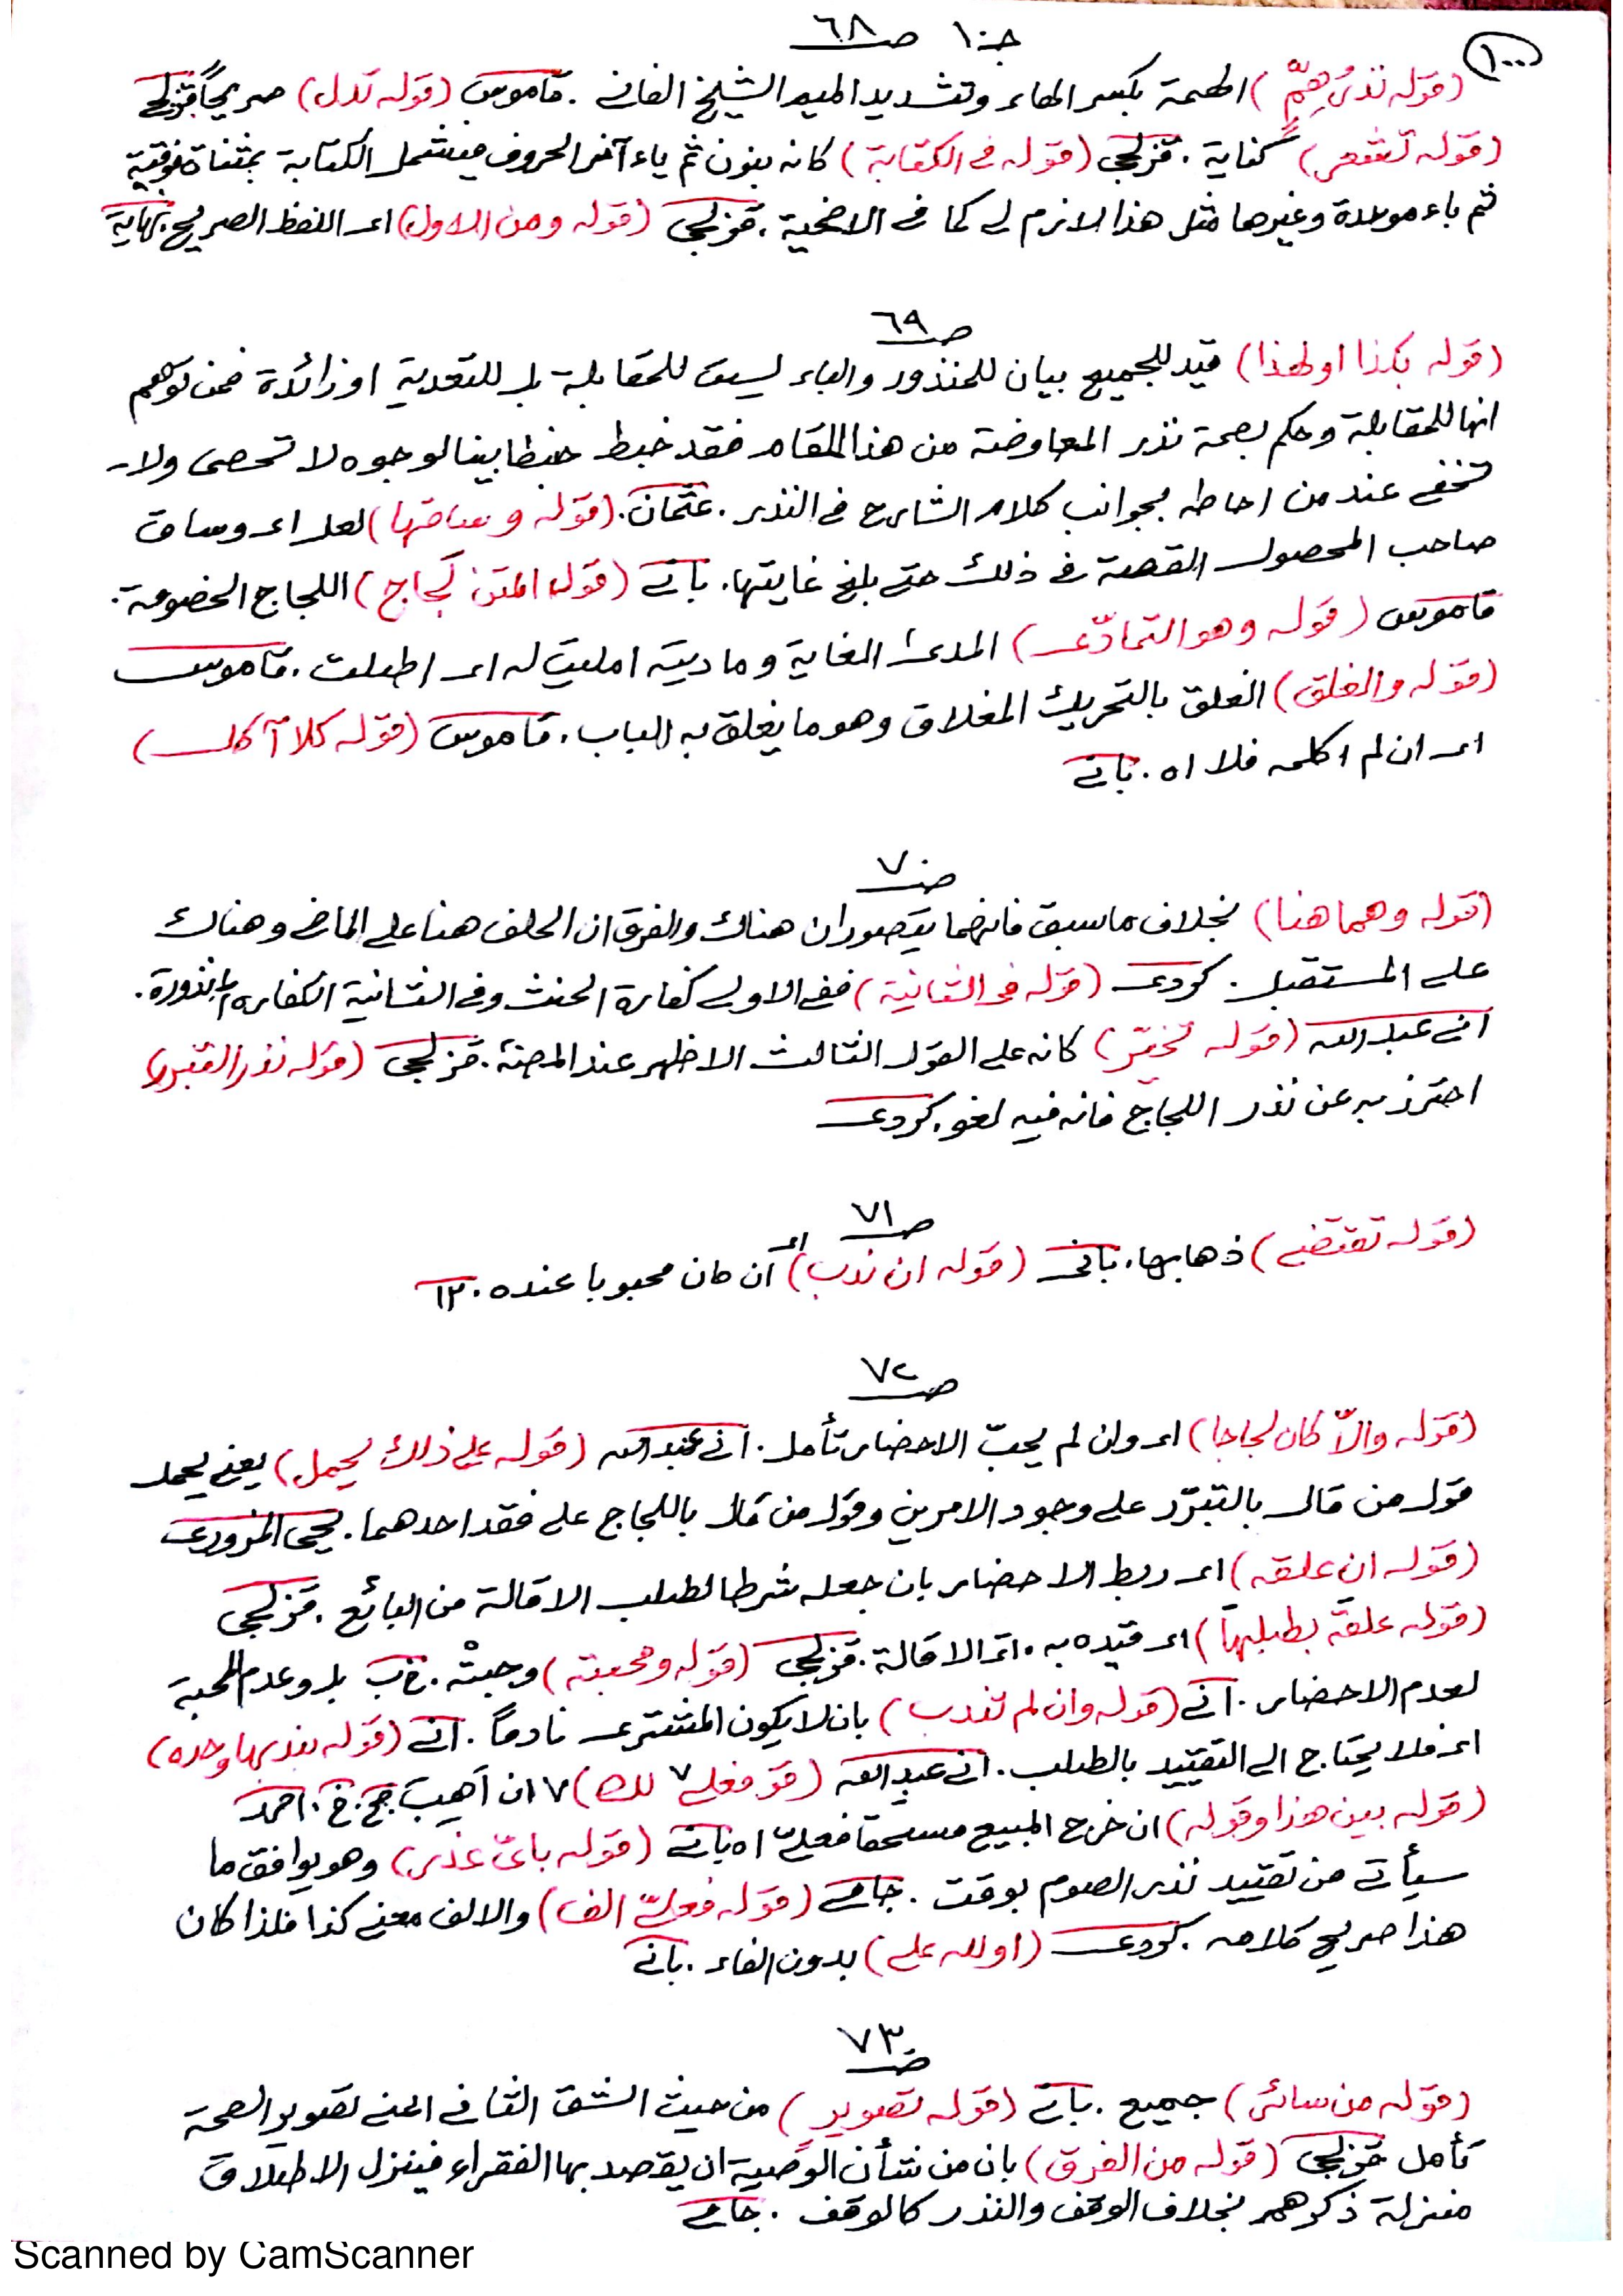 ١٠٠
جـ١٠ صـ٦٨
(قوله نذرُ هِمٍّ) الهمة بكسر الهاء وتشديد الميم الشيخ الفانى . قاموس (قوله تدل) صريحاً قزلجى
(قوله تشعر) كناية . قزلجى (قوله فى الكتابة) كانه بنون ثم ياء آخر الحروف فيشمل الكتابة بمثناة فوقية
ثم باء موحدة وغيرها مثل هذا لازم لى كما فى الاضحية . قزلجى (قوله ومن الاول) اى اللفظ الصريح . نهاية
صـ٦٩
(قوله بكذا او لهذا) قيد للجميع بيان للمنذور والباء ليست للمقابلة بل للتعدية او زائدة فمن توهم
انها للمقابلة وحكم بصحة نذر المعاوضة من هذا المقام فقد خبط خبطا بينا لوجوه لا تحصى ولا
تخفى عند من احاط بجوانب كلام الشارح فى النذر . عثمان . (قوله وساقها) لعله اى وساق
صاحب المحصول القصة فى ذلك حتى بلغ غايتها . بانى (قول المتن لَجاج) اللجاج الخصومة .
قاموس (قوله وهو التمادّى) المدى الغاية وماديته امليت له اى اطلت . قاموس
(قوله والغلق) الغلق بالتحريك المغلاق وهو ما يغلق به الباب . قاموس (قوله كلا آكل)
اى ان لم اكلمه فلا اه . بانى
صـ٧٠
(قوله وهما هنا) بخلاف ما سبق فانهما يتصوران هناك والفرق ان الحلف هنا على الماضى وهناك
على المستقبل . كردى (قوله فى الثانية) ففى الاولى كفارة الحنث وفى الثانية الكفارة المنذورة .
انى عبد الله (قوله تخيّر) كانه على القول الثالث الاظهر عند المصنف . قزلجى (قوله نذر التبرر)
احترز به عن نذر اللجاج فانه فيه لغو . كردى
صـ٧١
(قوله تقتضى) ذهابها . بانى (قوله ان ندب) اى ان كان محبوبا عنده . ١٢
صـ٧٢
(قوله والاّ كان لجاجا) اى وان لم يحبّ الاحضار تأمل . انى عبد الله (قوله على ذلك يحمل) يعنى يحمل
قول من قال بالتبرّر على وجود الامرين وقول من قال باللجاج على فقد احدهما . يحيى المزورى
(قوله ان علقه) اى ربط الاحضار بان جعله شرطا لطلب الاقالة من البائع . قزلجى
(قوله علقه بطلبها) اى قيده به اى الاقالة . قزلجى (قوله ومحبته) وجبتْه . خ ب بل وعدم المحبة
لعدم الاحضار . انى (قوله وان لم تندب) بان لا يكون المشترى نادماً . انى (قوله بندبها وحده)
اى فلا يحتاج الى التقييد بالطلب . انى عبد الله (قو فعلى ٧ لك) ٧ ان آهب جح . خ . احمد
(قوله بين هذا وقوله) ان خرج المبيع مستحقا فعلىّ اه بانى (قوله بأىّ عذر) وهو يوافق ما
سيأتى من تقييد نذر الصوم بوقت . جامى (قوله فعلىّ الف) والالف معنى كذا فلذا كان
هذا صريح كلامه . كردى (او لله على) بدون الفاء . بانى
صـ٧٣
(قوله من سائر) جميع . بانى (قوله تصوير) من حيث الشق الثانى اعنى تصوير الصحة
تأمل قزلجى (قوله من الفرق) بان من شأن الوصية ان يقصد بها الفقراء فينزل الاطلاق
منزلة ذكرهم بخلاف الوقف والنذر كالوقف . جامى
Scanned by CamScanner